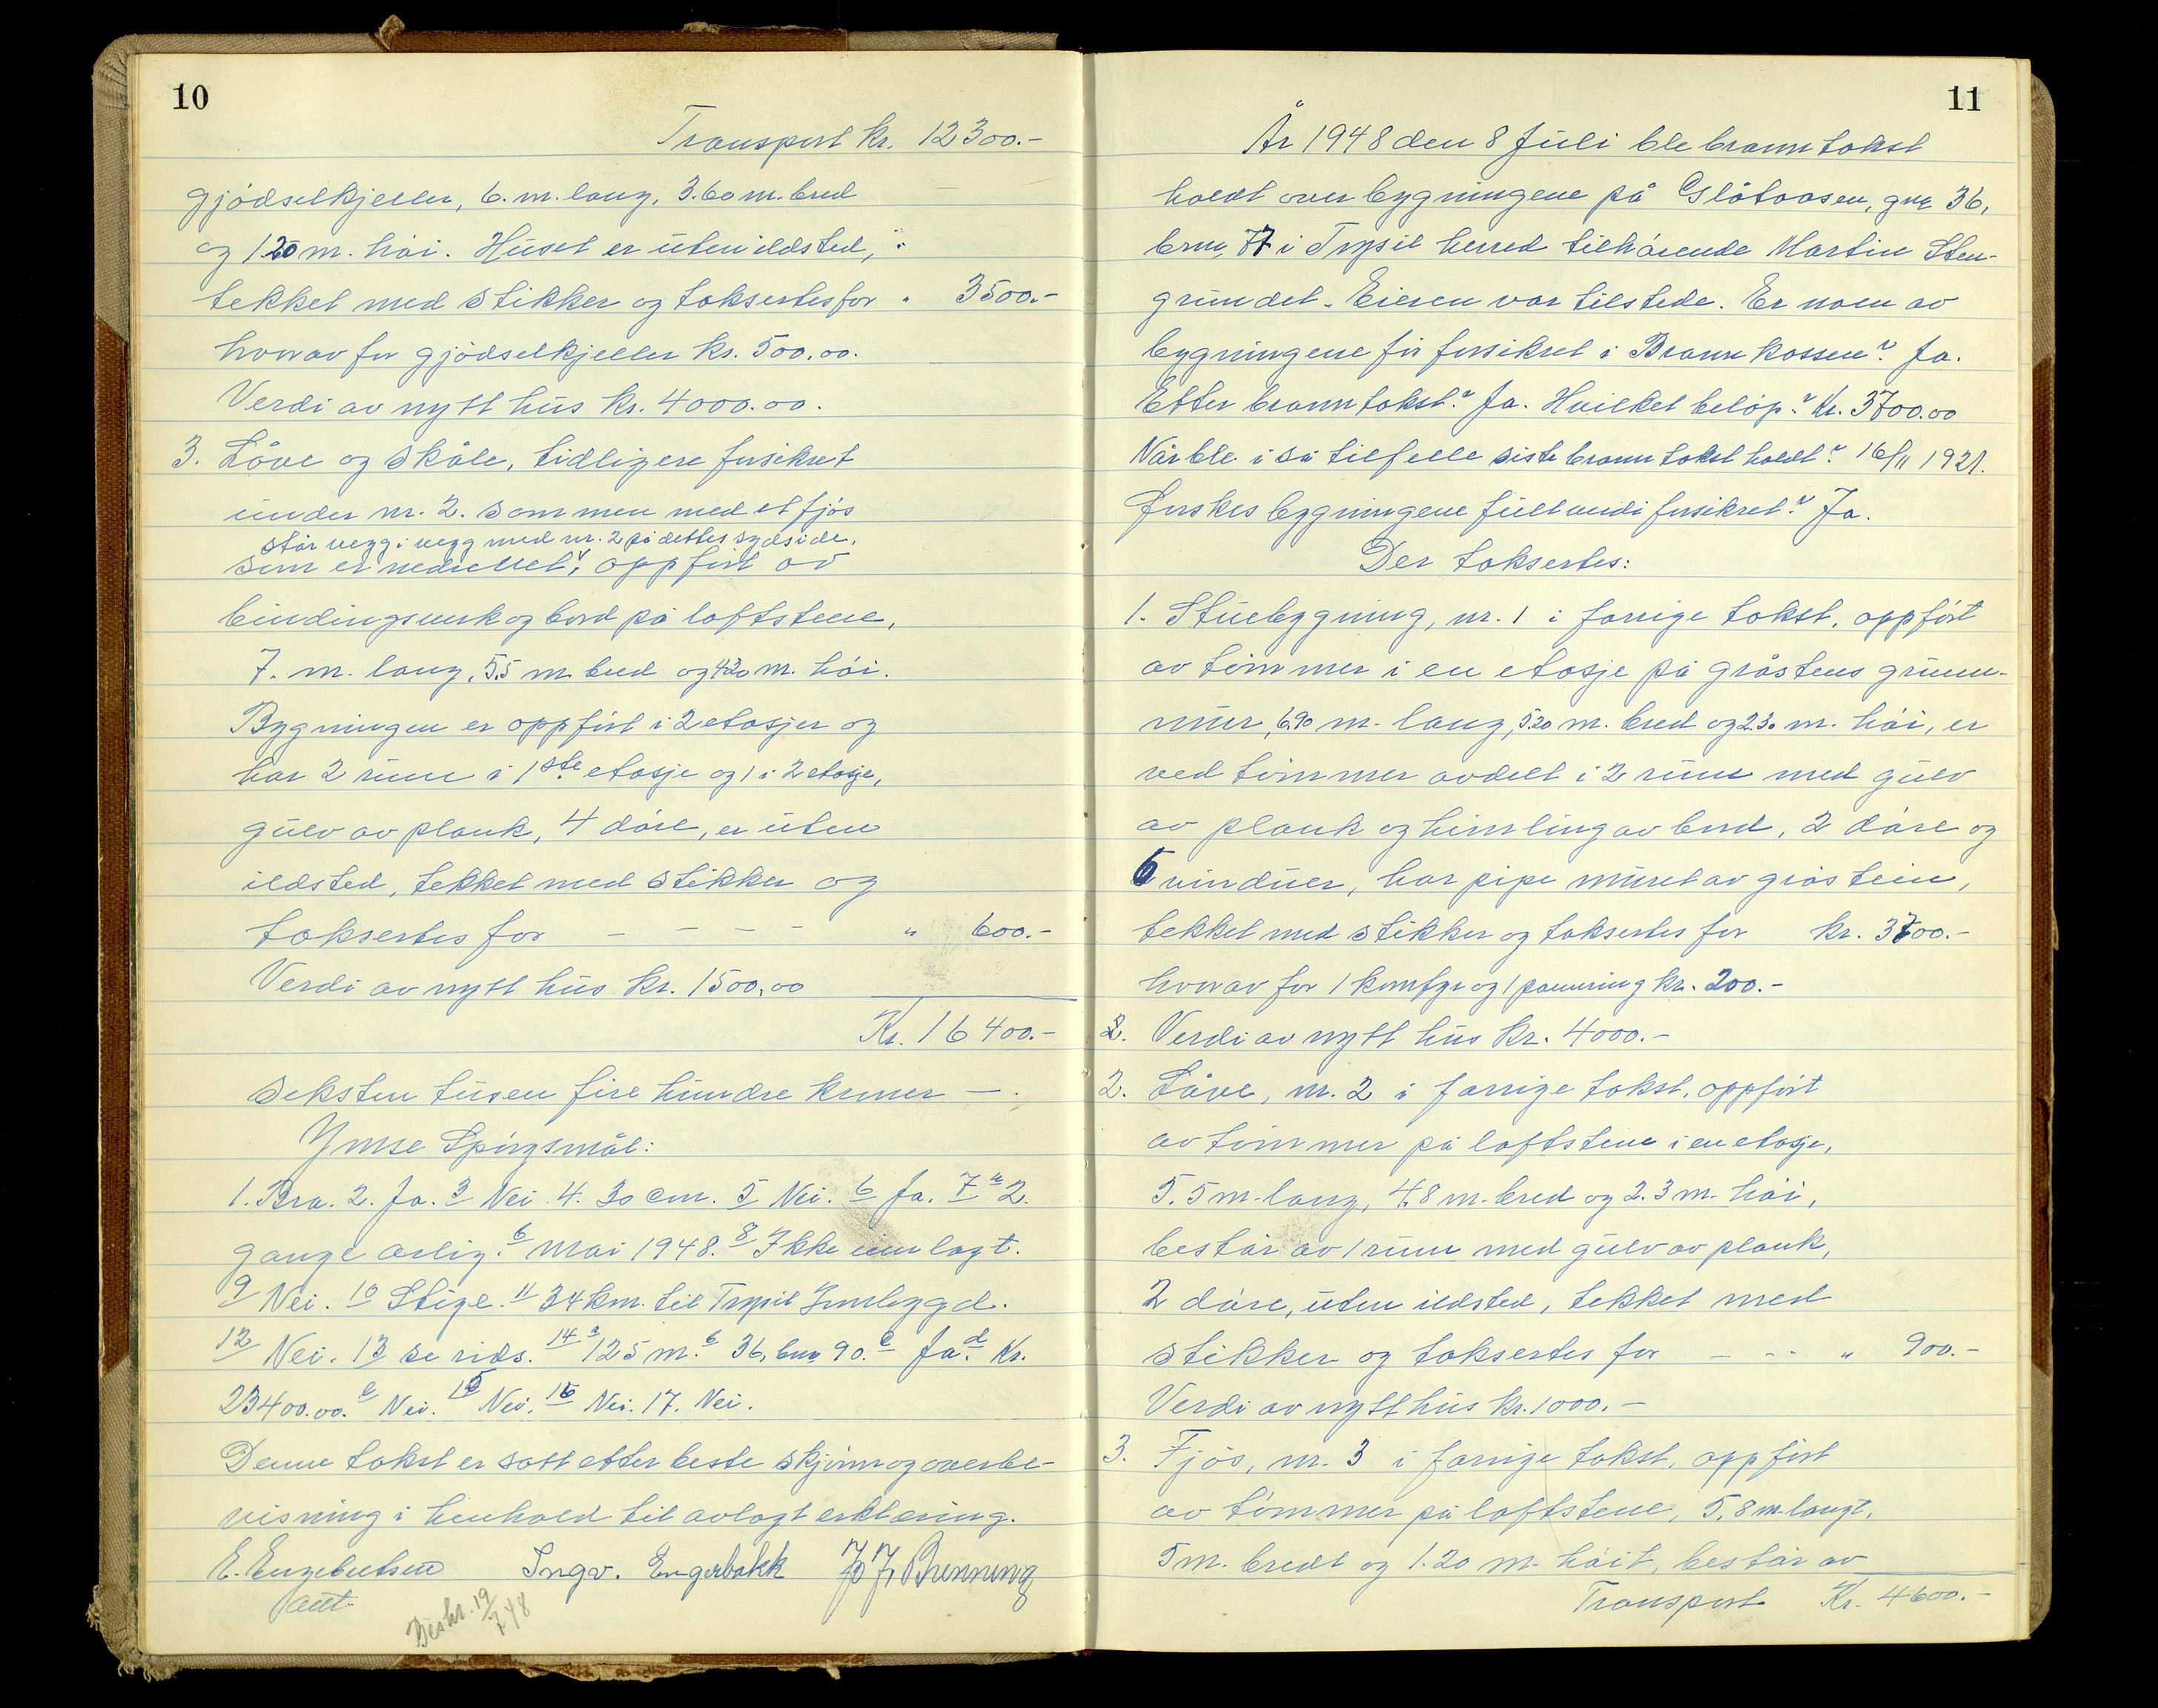 10
Transport kr. 12300.-
gjödselkjeller, 6. m. lang, 3.60 m. bred
og 1.20 m. höi. Huset er uten ildsted,
tekket med stikker og taksertes for " 3500.-
hvorav for gjödselkjeller kr. 500.00.
Verdi av nytt hus kr. 4000.00.
3. Låve og skåle, tidligere forsikret
under nr. 2. sammen med et fjös
står vegg i vegg med nr. 2 på dettes sydside.
som er nedrevet, oppfört av
bindingsverk og bord på loftstene,
7. m. lang, 5.5 m bred og 4.20 m. höi.
Bygningen er oppfört i 2 etasjer og
har 2 rum i 1ste etasje og 1 i 2 etasje,
gulv av plank, 4 döre, er uten
ildsted, tekket med stikker og
taksertes for - - - - " 600.-
Verdi av nytt hus kr. 1500.00
Kr. 16400.-
Seksten tusen fire hundre kroner -.
Ymse Spörgsmål:
1. Bra. 2. Ja. 3 Nei. 4. 30 cm. 5 Nei. 6 Ja. 7 a 2.
gange årlig. b mai 1948. 8 Ikke innlagt.
9 Nei. 10 Stige. 11 34 km. til Trysil Innbygd.
12 Nei. 13 se rids. 14 a 125 m. b 36, bnr 90. c Ja. d Kr.
23400.00. e Nei. 15 Nei. 16 Nei. 17. Nei.
Denne takst er satt etter beste skjönn og overbe-
visning i henhold til avlagt erklæring.
E. Engebretsen Ingv. Engerbakk Jo Jr. Brenneng
aut
Beskr. 19/7 48
11
År 1948 den 8 Juli ble branntakst
holdt over bygningene på Glötåsen, gnr 36,
brnr, 77 i Trysil herred tilhörende Martin Sten-
grundet. Eieren var tilstede. Er noen av
bygningene för forsikret i Brannkassen? Ja.
Etter branntakst? Ja. Hvilket belöp? Kr. 3700.00
Når ble i så tilfelle siste branntakst holdt? 16/11 1921.
Önskes bygningene fullverdi forsikret? Ja.
Der taksertes:
1. Stuebygning, nr. 1 i forrige takst, oppfört
av tömmer i en etasje på gråstens grunn-
mur, 6.90 m. lang, 5.20 m. bred og 2.30 m. höi, er
ved tömmer avdelt i 2 rum med gulv
av plank og himling av bord, 2 döre og
6 vinduer, har pipe muret av gråstein,
tekket med stikker og taksertes for kr. 3700.-
hvorav for 1 komfyr og 1 panering kr. 200.-
2. Verdi av nytt hus kr. 4000.-
2. Låve, nr. 2 i forrige takst, oppfört
av tömmer på loftstene i en etasje,
5.5 m. lang, 4.8 m. bred og 2.3 m. höi,
består av 1 rum med gulv av plank,
2 döre, uten ildsted, tekket med
stikker og taksertes for - - - " 900.-
Verdi av nytt hus kr. 1000.-
3. Fjös, nr. 3 i forrige takst, oppfört
av tömmer på loftstene, 5.8 m. langt,
5 m. bredt og 1.20 m. höit, består av
Transport Kr. 4600.-